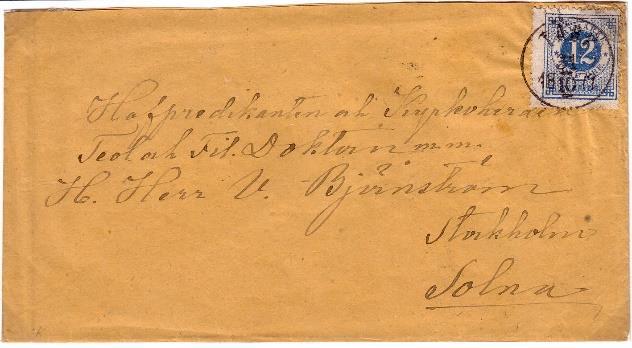 12
Hofpredikanten och Kyrkoherden
Teol och Fil. Doktorn m.m.
H. Herr V. Björnström
Stockholm
Solna